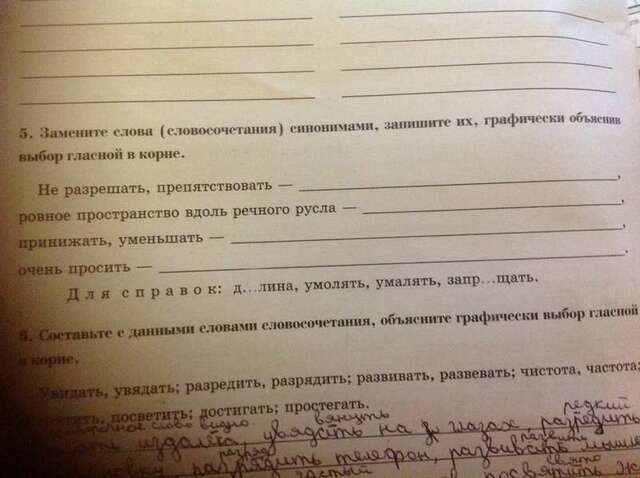 5. Замените слова (словосочетания) синонимами, запишите их, графически объяснив
выбор гласной в корне.
Не разрешать, препятствовать — ,
ровное пространство вдоль речного русла — ,
принижать, уменьшать — ,
очень просить — .
Для справок: д...лина, умолять, умалять, запр...щать.
6. Составьте с данными словами словосочетания, объясните графически выбор гласной
в корне.
Увидать, увядать; разредить, разрядить; развивать, развевать; чистота, частота;
посветить; достигать; простегать.
слово видно. вянуть редкий
издалека, увядать на глазах, разредить
разряд развитие
разрядить телефон, развивать
частый свято
посвятить